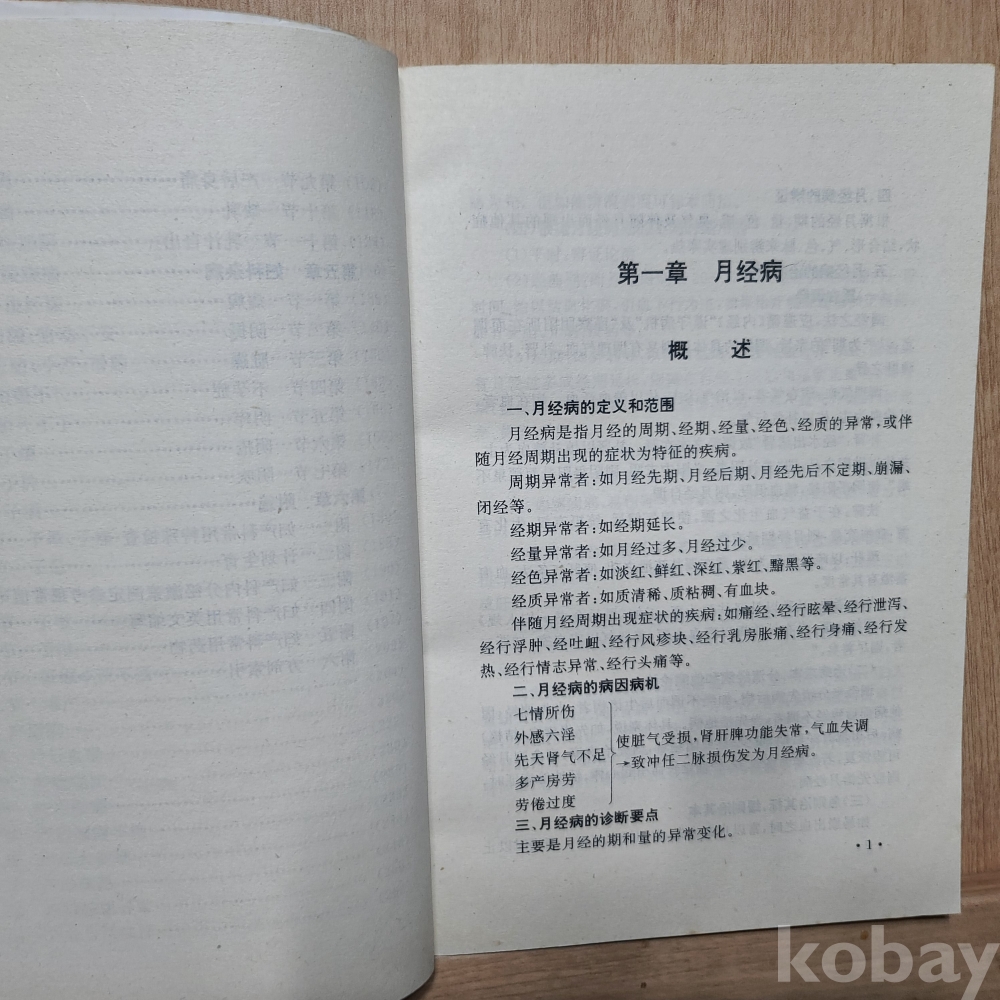 第一章 月经病
概 述
一、月经病的定义和范围
月经病是指月经的周期、经期、经量、经色、经质的异常,或伴
随月经周期出现的症状为特征的疾病。
周期异常者:如月经先期、月经后期、月经先后不定期、崩漏、
闭经等。
经期异常者:如经期延长。
经量异常者:如月经过多、月经过少。
经色异常者:如淡红、鲜红、深红、紫红、黯黑等。
经质异常者:如质清稀、质粘稠、有血块。
伴随月经周期出现症状的疾病:如痛经、经行眩晕、经行泄泻、
经行浮肿、经吐衄、经行风疹块、经行乳房胀痛、经行身痛、经行发
热、经行情志异常、经行头痛等。
二、月经病的病因病机
七情所伤
外感六淫
先天肾气不足
多产房劳
劳倦过度
使脏气受损,肾肝脾功能失常,气血失调
→致冲任二脉损伤发为月经病。
三、月经病的诊断要点
主要是月经的期和量的异常变化。
·1·
kobay